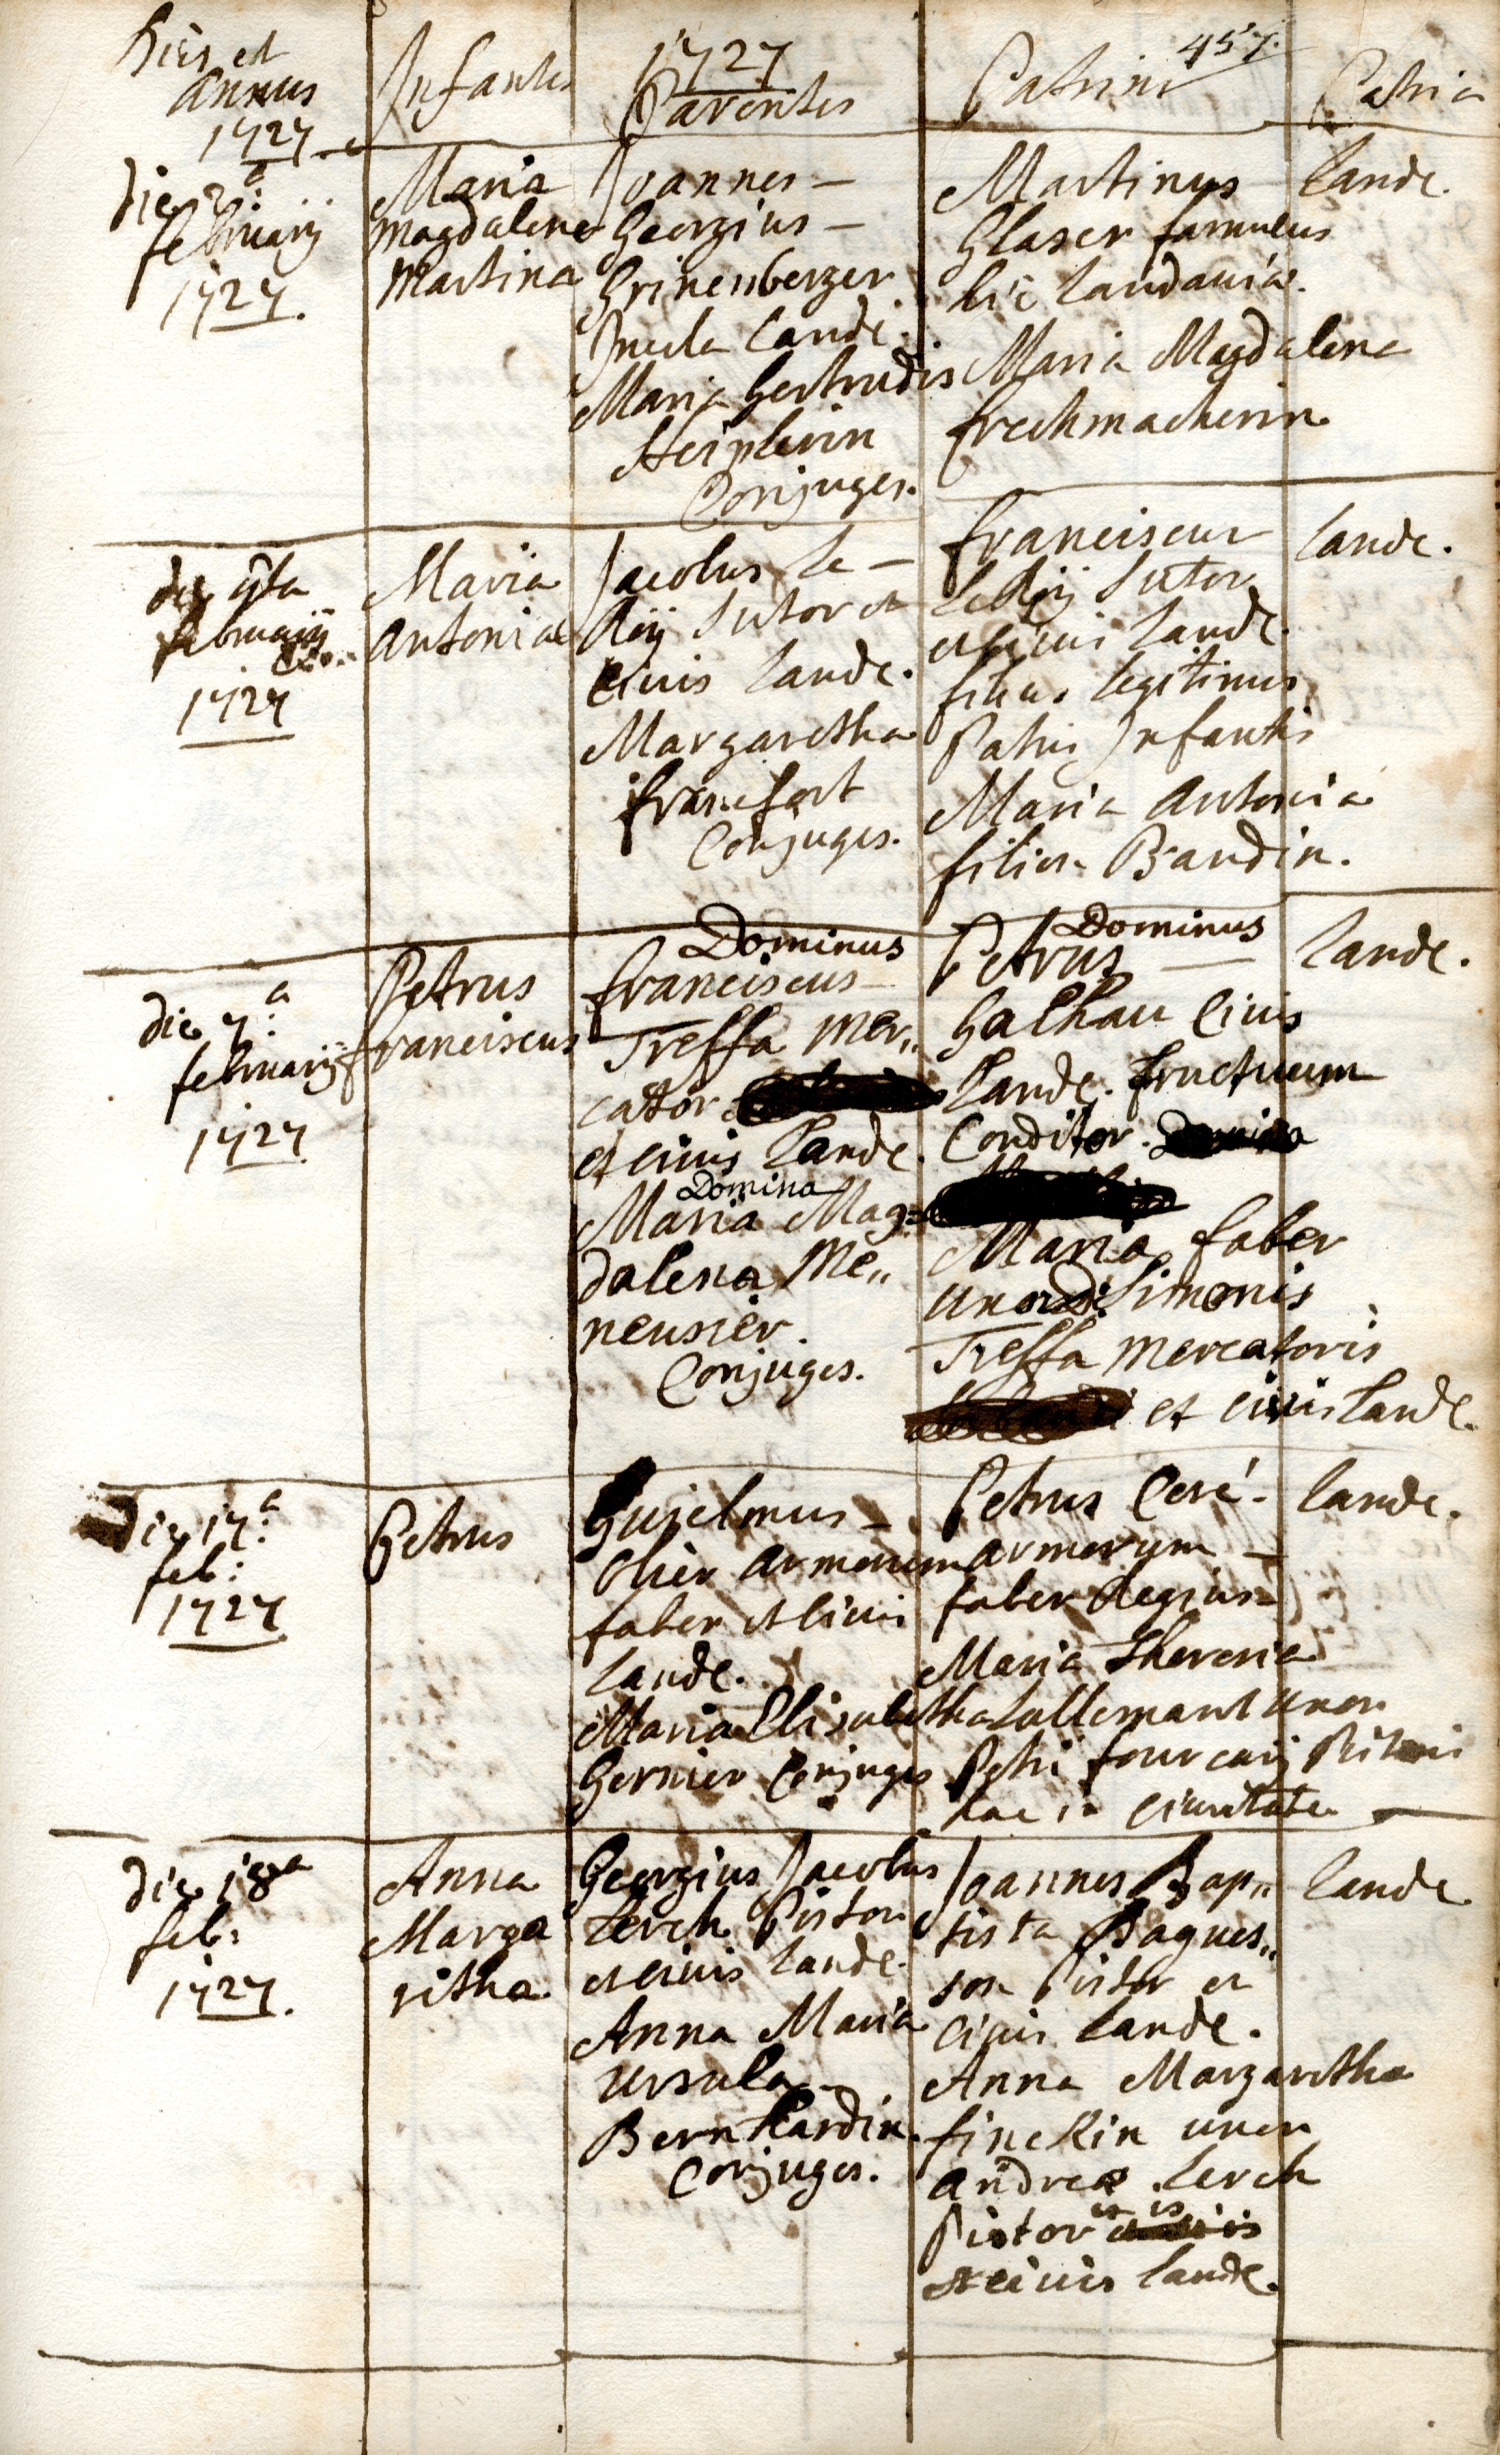 Dies et
annus
1727
Infantes
1727
Parentes
457.
Patrini
Patria
die 2a:
februarij
1727.
Maria
Magdalene
Martina
Joannes —
Georgius —
Grinenberger
Incola Lande.
Maria Gertrudis
Conjuges.
Martinus
Glaser famulus
hic Landaviae.
Maria Magdalena
frechmacherin
Lande.
die 4ta
februarij
1727
Maria
Antonia
Jacobus le —
Roij Sutor et
Civis Lande.
Margaretha
francfort
Conjuges.
franciscus
le Roij Sutor
et civis Lande.
filius legitimus
Patris Infantis
Maria Antonia
filia Baudin.
Lande.
die 7a:
februarij
1727
Petrus
franciscus
Dominus
franciscus
Treffa Mer„
cator
et civis Lande.
Domina
Maria Mag=
dalena Me„
neusier.
Conjuges.
Dominus
Petrus —
Galhau Civis
Lande. fructuum
Conditor.
Maria faber
uxor Simonis
Treffa Mercatoris
et civis Lande.
Lande.
Die 17a:
feb:
1727
Petrus
Guielmus —
Olier armorum
faber et civis
Lande.
Maria Elisabetha
Gernier Conjuges
Petrus Ceré.
armorum —
faber Regius
Maria Theresia
Lallemant uxor
Petri fourcaij
hac in civitate
Lande.
die 18a
feb:
1727.
Anna
Marga
ritha
Georgius Jacobus
Lerch Pistor
et civis Lande.
Anna Maria
Ursula
Bernhardin.
Conjuges.
Joannes Bap„
tista Bagues„
son Pistor et
Civis Lande.
Anna Margaretha
finckin uxor
Andreae Lerch
Pistoris
et civis Lande.
Lande